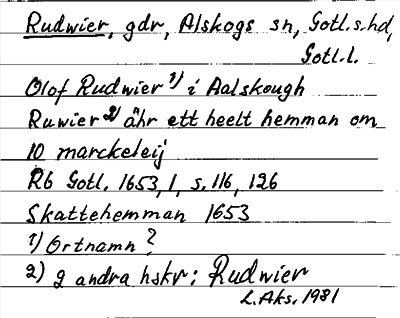 Rudwier, gdr, Alskogs sn, Gotl.s.hd,
Gotl.l.
Olof Rudwier 1) i Aalskough
Ruwier 2) ähr ett heelt hemman om
10 marckeleij
Rb Gotl. 1653, 1, s. 116, 126
Skattehemman 1653
1) Ortnamn?
2) 2 andra hskr: Rudwier
L. Aks. 1981